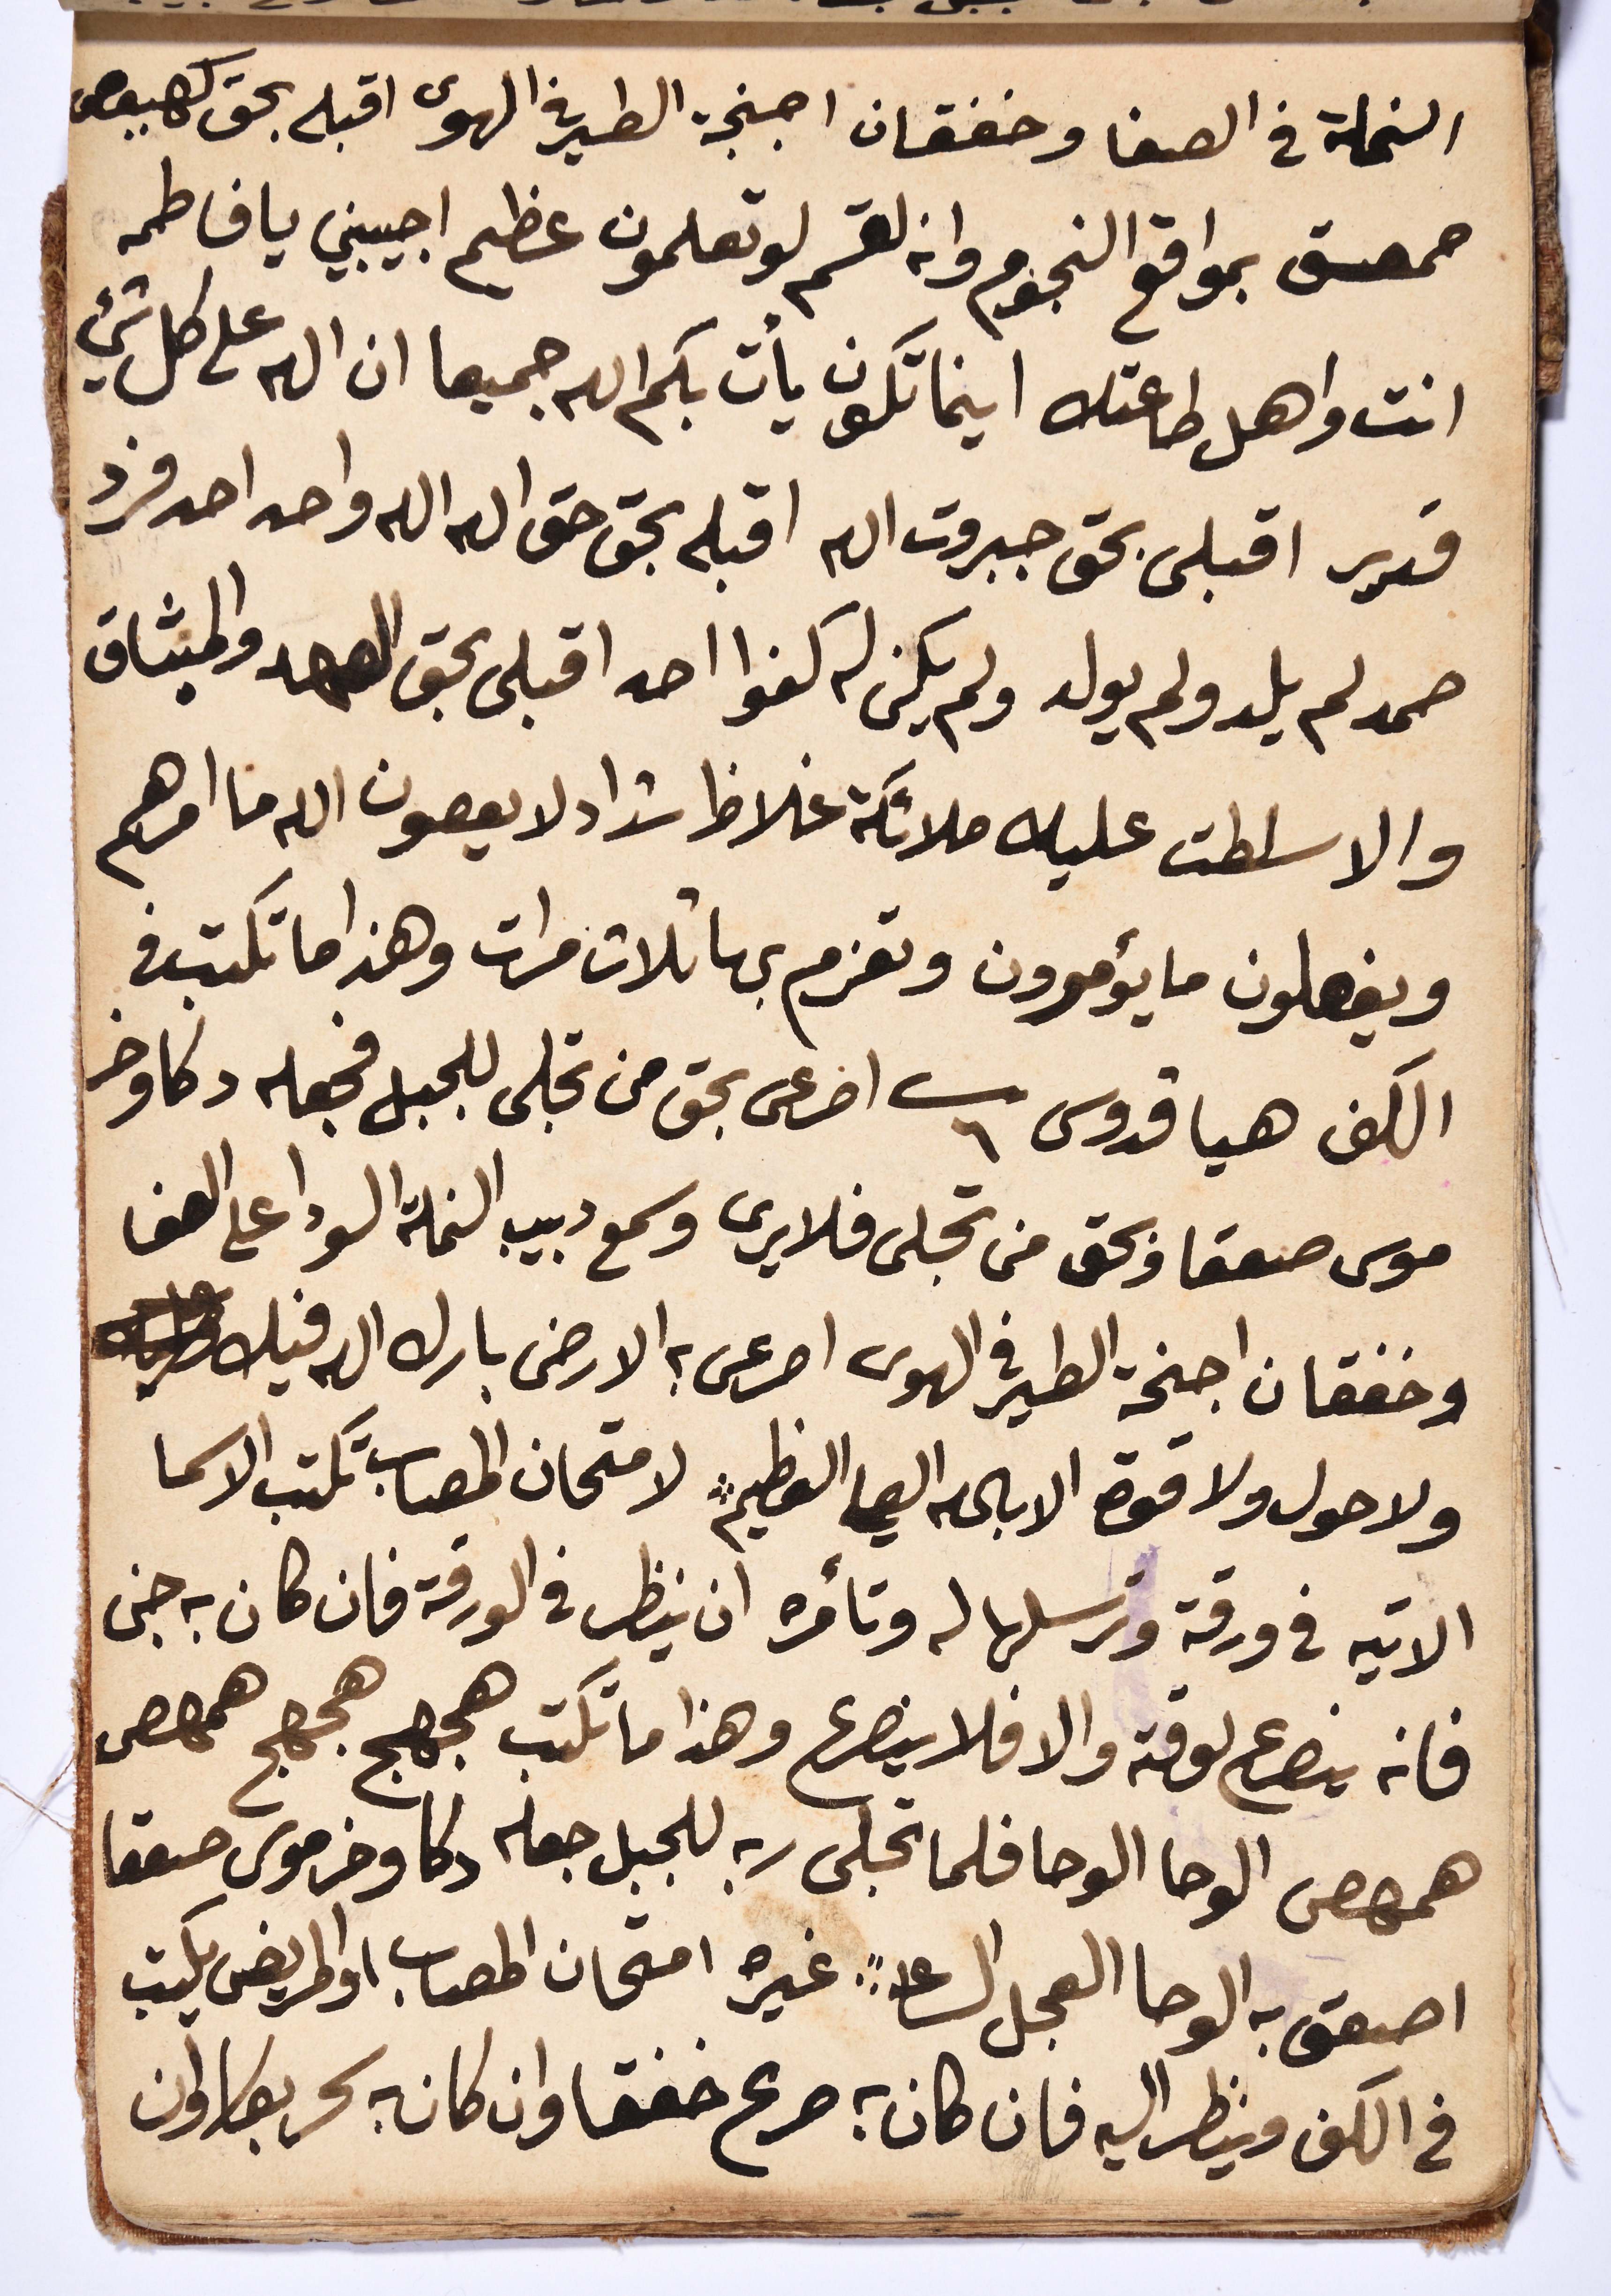 النملة في الصفا وخفقان اجنحة الطير في الهوى اقبله بحق كهيعص
حمعسق بمواقع النجوم وانه لقسم لو تعلمون عظيم اجيبيني يا فاطمه
انت واهل طاعتك اينما تكون يأت بكم الله جميعا ان الله على كل شيْ
قدير اقبلى بحق جبروت الله اقبله بحق حق الله الله واحد احد فرد
صمد لم يلد ولم يولد ولم يكن له كفوا احد اقبلى بحق العهد والميثاق
والا سلطت عليك ملائكة غلاظ شداد لا يعصون الله ما امرهم
ويفعلون ما يؤمرون وتعزم بها ثلاث مرات وهذا ما تكتب في
الكف هيا قدوس ٦ اصرعى بحق من تجلى للجبل فجعله دكا وخر
موسى صعقا وبحق من تجلى فلا يرى وسمع دبيب النملة السودا على الصفا
وخفقان اجنحة الطير في الهوى اصرعى به الارض بارك الله فيك
ولا حول ولا قوة الا بالله العلي العظيم لامتحان المصاب تكتب الاسما
الاتيه في ورقة وترسلها له وتأمره ان ينظر في الورقة فان كان به جنى
فانه ينصرع لوقته والا فلا ينصرع وهذا ما تكتب هجهج هجهج همهص
همهص الوحا الوحا فلما تجلى ربه للجبل جعله دكا وخر موسى صعقا
اصعق به الوحا العجل الساعة غيره امتحان المصاب او المريض يكتب
في الكف وينظر اليه فان كان به صرع خفقا وان كان به سحر بكا وان